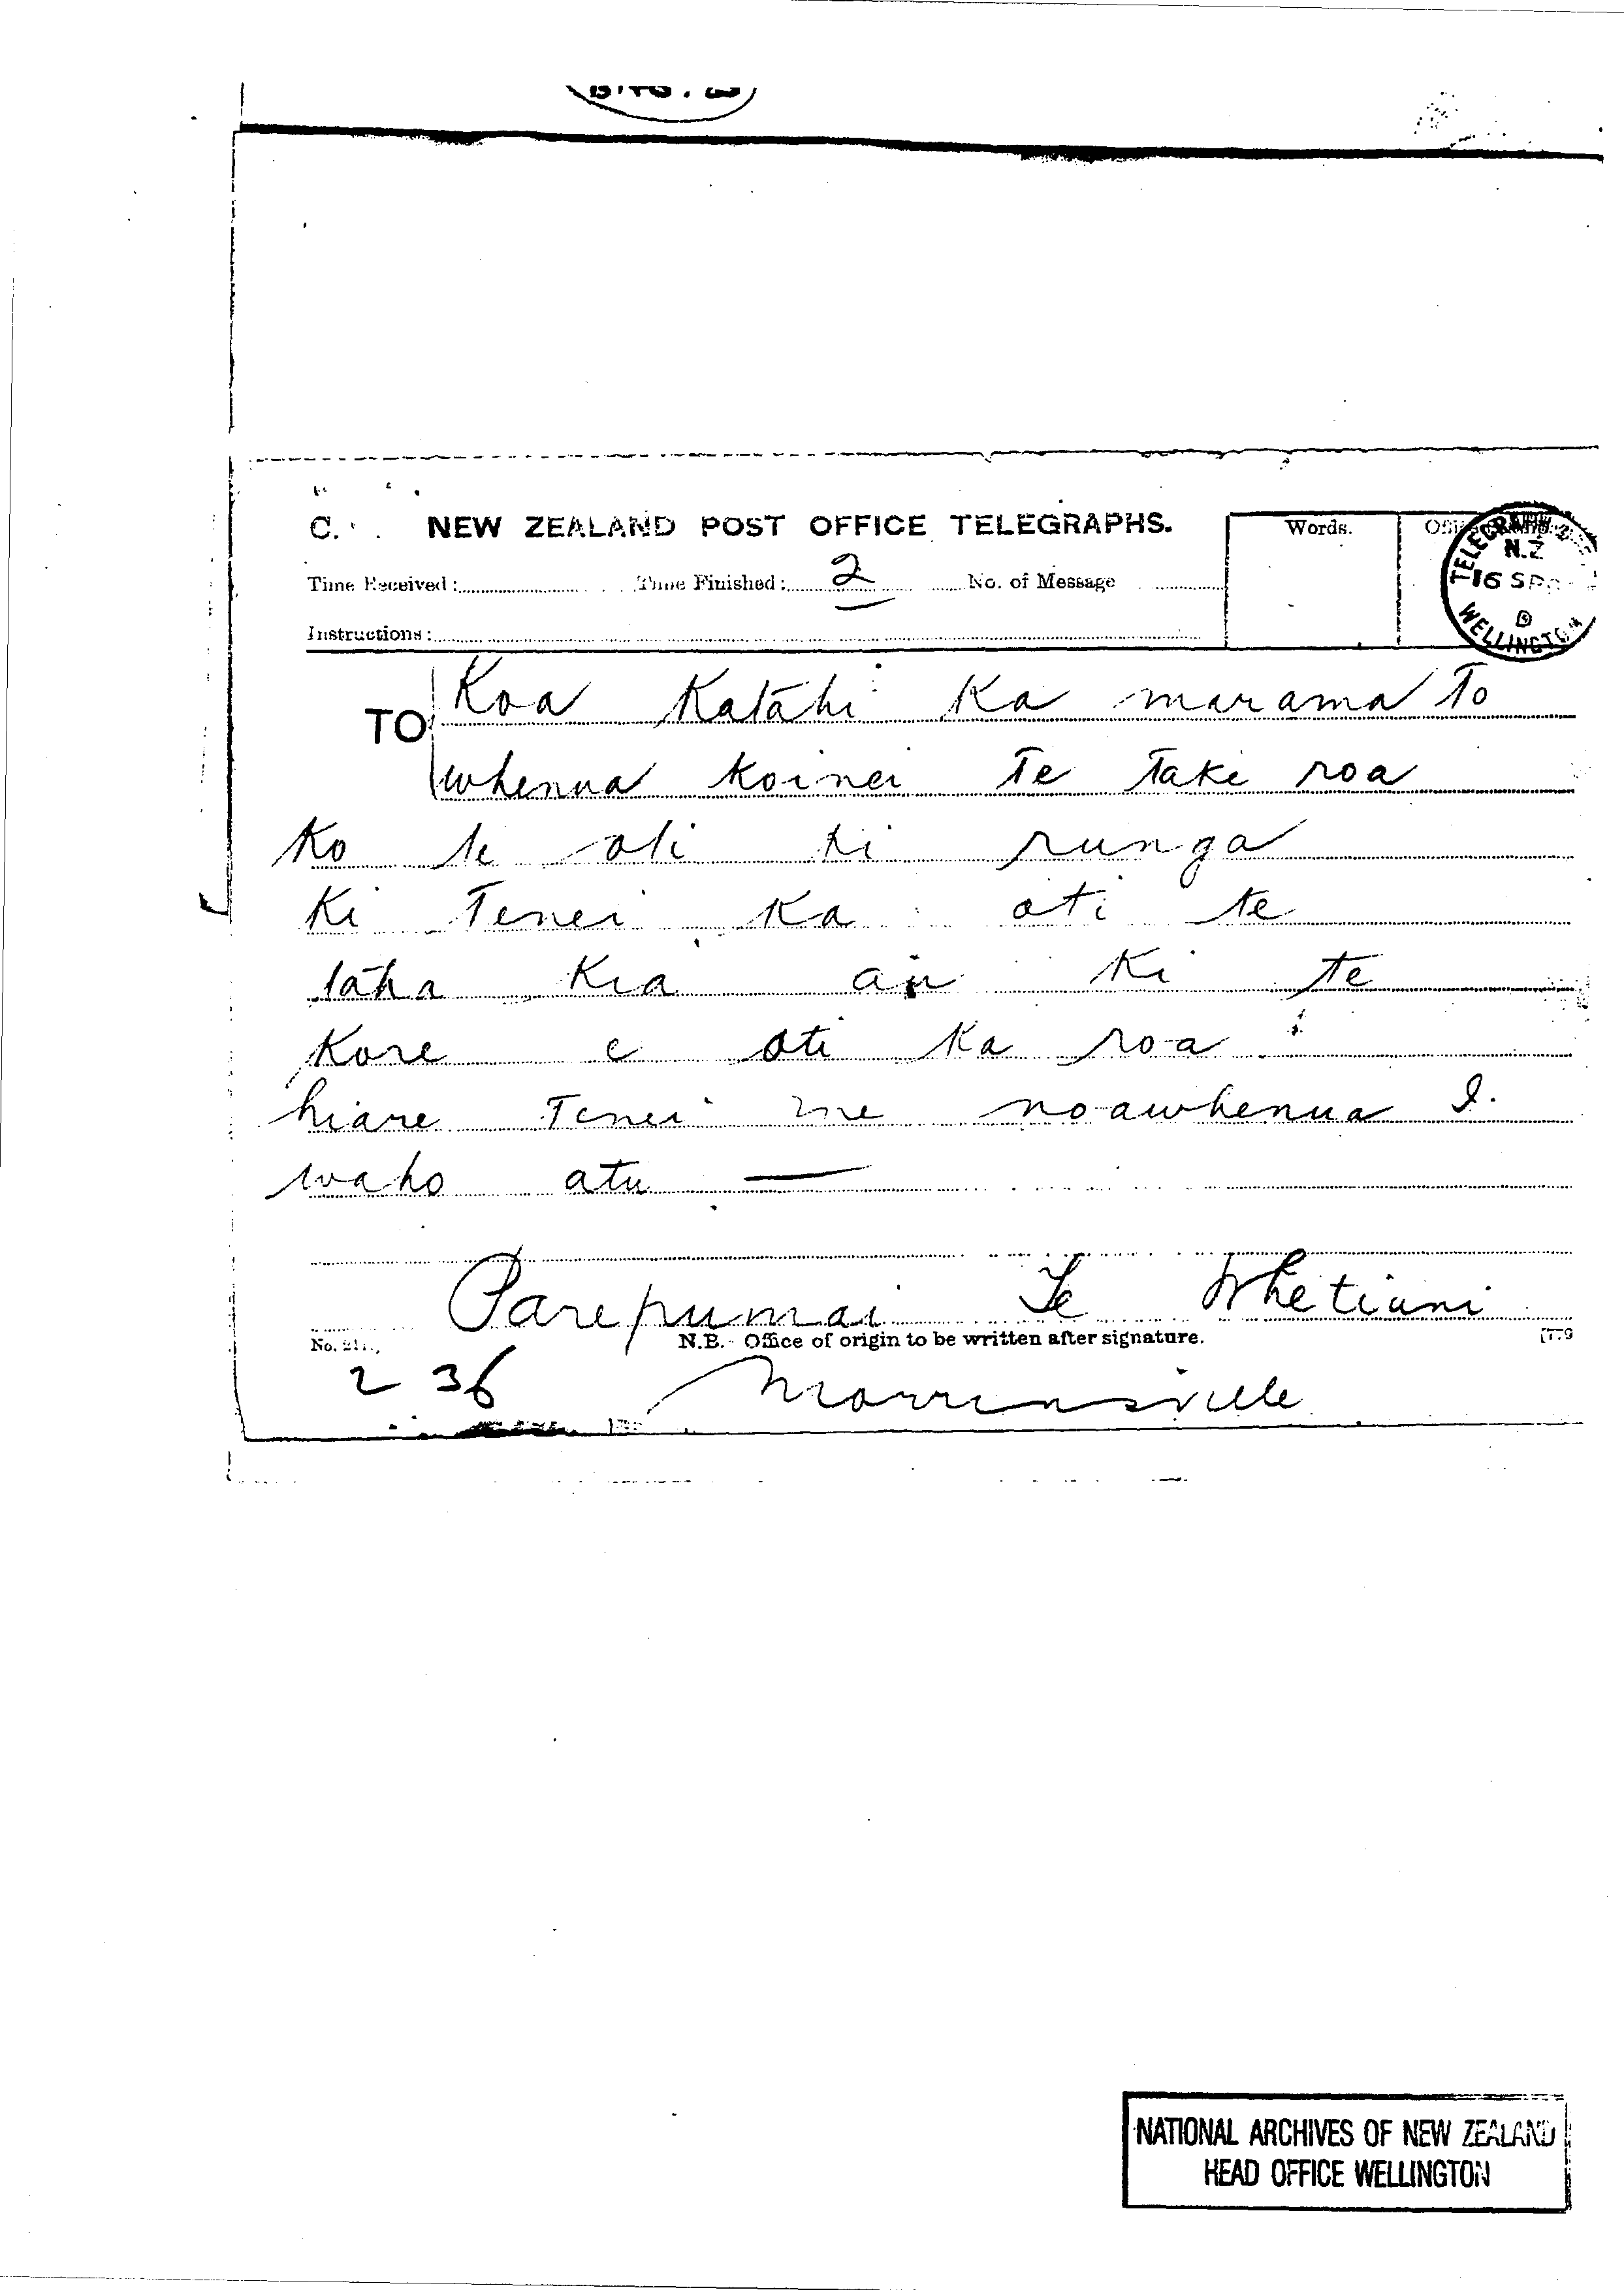 C. NEW ZEALAND POST OFFICE TELEGRAPHS.
Words.
TELEGRAPH
N.Z
16 SP
WELLINGTON
Time Received: Time Finished: 2 No. of Message
Instructions:
TO Koa Katahi Ka marama To
whenua koinei Te Take roa
Ko te oti ki runga
Ki Tenei Ka oti te
taha Kia au Ki te
Kore e oti Ka roa
hiare Tenei me noawhenua I.
waho atu —
Parepumai Te Whetiuni
No. N.B.- Office of origin to be written after signature.
2 36 Morrinsville
NATIONAL ARCHIVES OF NEW ZEALAND
HEAD OFFICE WELLINGTON